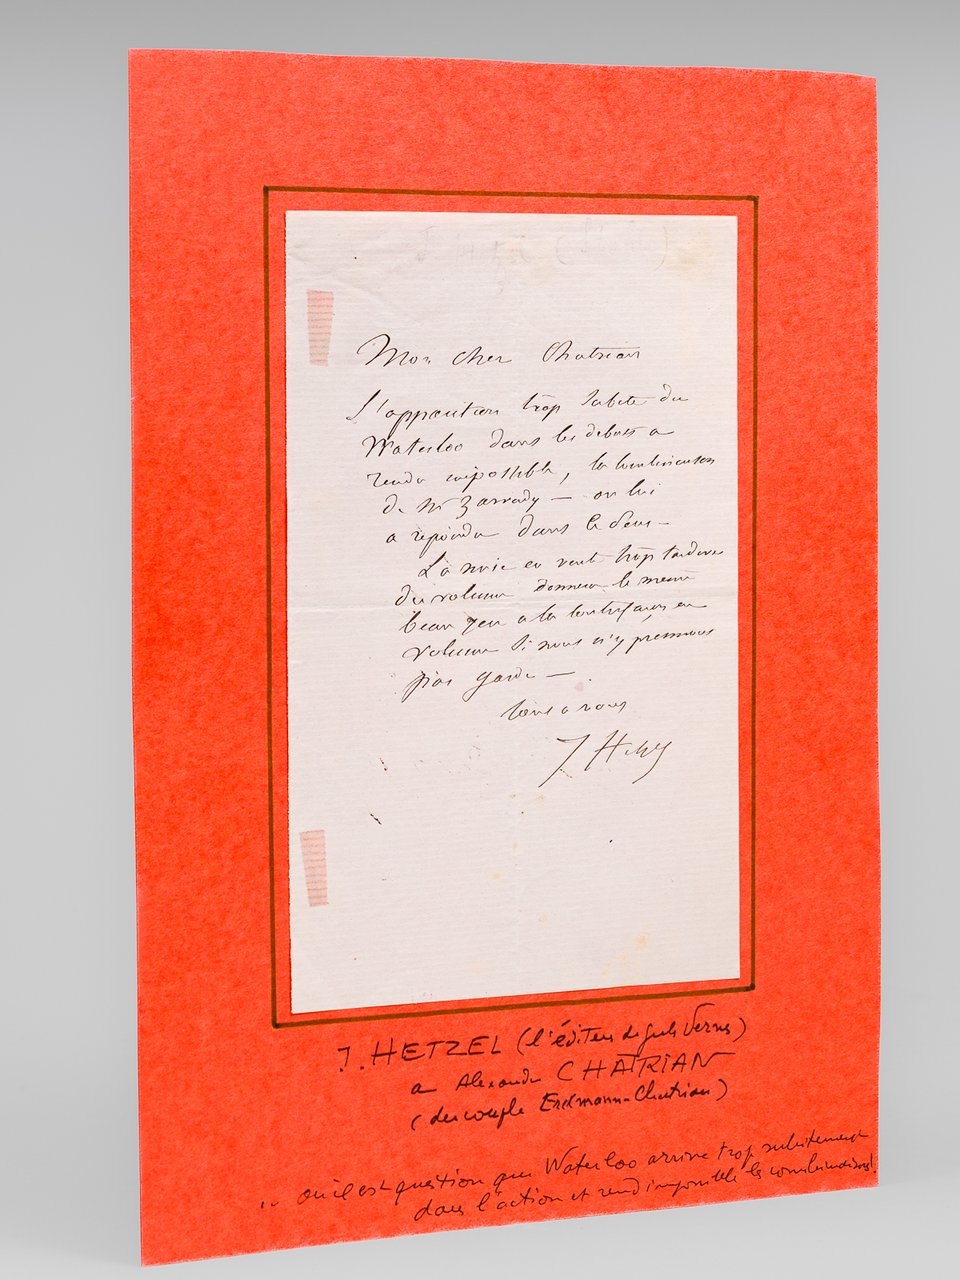 Mon cher Chatrian
L'apparition trop subite du
Waterloo dans les débats a
rendu impossible, la combinaison
de Mr — on lui
a répondu dans ce sens —
La mise en vente trop tardive
du volume donnera le même
beau jeu a la contrefaçon en
volume si nous n'y prenons
pas garde —
tous a vous
J Hetzel
J. HETZEL (l'éditeur de Jules Verne)
a Alexandre CHATRIAN
(du couple Erckmann-Chatrian)
... ou il est question que Waterloo arrive trop subitement
dans l'action et rend impossible les combinaisons!